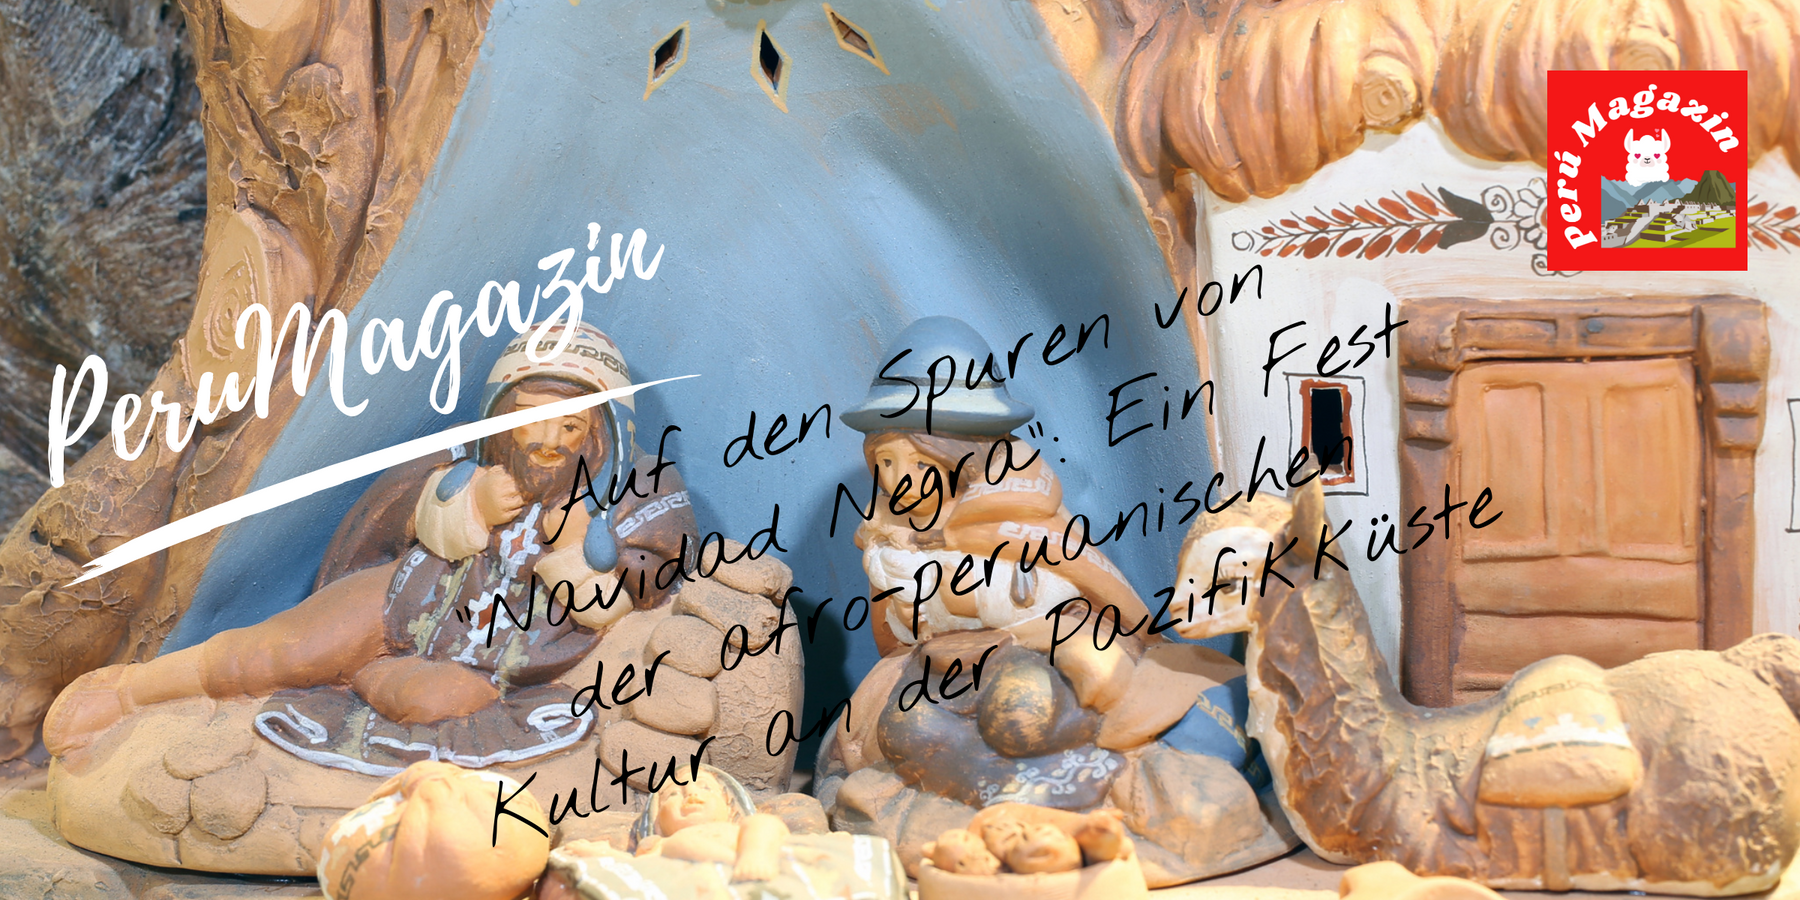 PeruMagazin
Auf den Spuren von
"Navidad Negra": Ein Fest
der afro-peruanischen
Kultur an der Pazifikküste
Perú Magazin